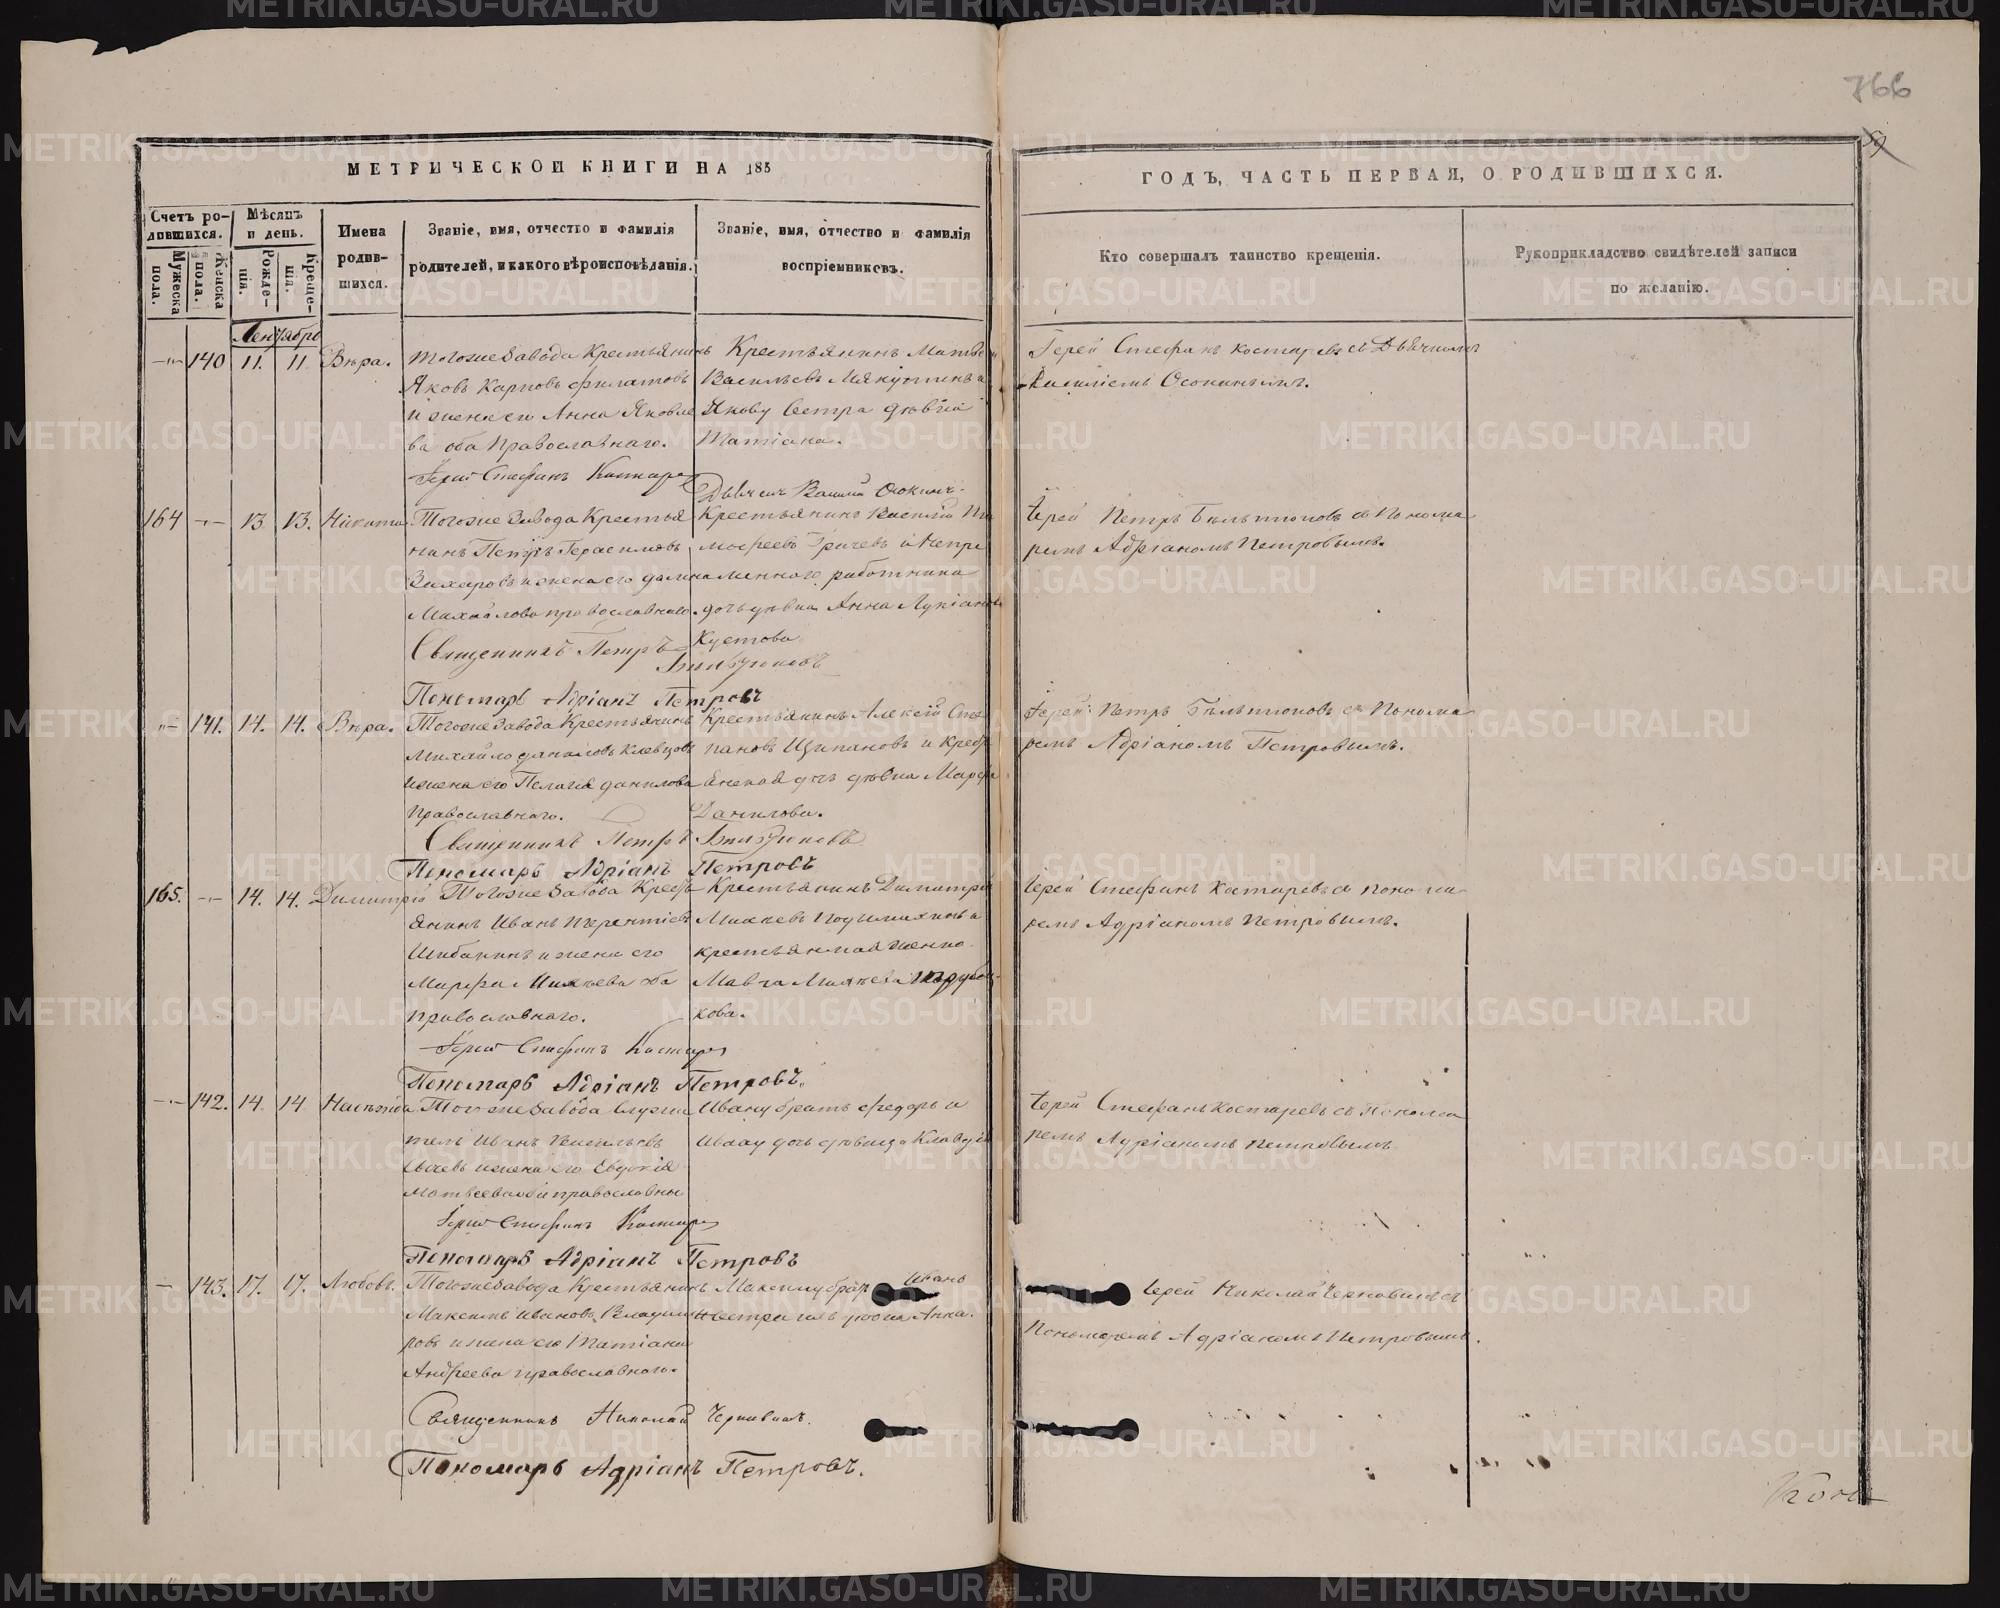 766
59
МЕТРИЧЕСКОЙ КНИГИ НА 185
ГОДЪ, ЧАСТЬ ПЕРВАЯ, О РОДИВШИХСЯ.
Счетъ ро-
дившихся.
Мужеска пола.
Женска пола.
Мѣсяцъ
и день.
Рожде-
нія.
Креще-
нія.
Имена
родив-
шихся.
Званіе, имя, отчество и фамилія
родителей, и какого вѣроисповѣданія.
Званіе, имя, отчество и фамилія
воспріемниковъ.
Кто совершалъ таинство крещенія.
Рукоприкладство свидѣтелей записи
по желанію.
Сентябрь
140 11. 11 Вѣра.
Тогоже Завода Крестьянинъ
Яковъ Карповъ Филатовъ
и жена его Анна Яковле
ва оба Православнаго.
Крестьянинъ
Васильевъ
Якову Сестра дѣвица
Татіана.
Іерей Стефанъ Костаревъ съ Дьячкомъ
Василіемъ Осокинымъ.
Іерей Стефанъ Костарев
Дьячекъ Василій Осокинъ
164 13 13. Никита
Тогоже Завода Крестья
нинъ Петръ Герасимовъ
Захаровъ и жена его
Михайлова православнаго.
Крестьянинъ Василій Ти
мофеевъ
работника
дочь дѣвица Анна
Кустова
Іерей Петръ Бѣльтюковъ съ Понома
ремъ Адріаномъ Петровымъ.
Священникъ Петръ Бѣльтюковъ
Пономарь Адріанъ Петровъ
141. 14. 14. Вѣра.
Тогоже Завода Крестьянинъ
Михайло Даниловъ
и жена его Пелагія Данилова
Православнаго.
Крестьянинъ Алексій Сте
пановъ Щипановъ и Крест
янская дочь дѣвица Марфа
Данилова.
Іерей Петръ Бѣльтюковъ съ Понома
ремъ Адріаномъ Петровымъ.
Священникъ Петръ Бѣльтюковъ
Пономарь Адріанъ Петровъ
165. 14. 14. Димитрій
Тогоже Завода Крест
янинъ Иванъ Терентіев
Шибакинъ и жена его
Марфа Михѣева оба
православнаго.
Крестьянинъ Димитрій
Михѣевъ
крестьянская женка
Мавра
кова.
Іерей Стефанъ Костаревъ съ понома
ремъ Адріаномъ Петровымъ.
Іерей Стефанъ Костарев
Пономарь Адріанъ Петровъ.
142. 14. 14 Надежда
Тогоже Завода Служи
тель Иванъ Васильевъ
и жена его Евдокія
Матвеева оба православны
Ивану братъ Федоръ и
дочь дѣвица Клавдія
Іерей Стефанъ Костаревъ съ Понома
ремъ Адріаномъ Петровымъ
Іерей Стефанъ Костарев
Пономарь Адріанъ Петровъ
143. 17. 17. Любовь.
Тогоже Завода Крестьянинъ
Максимъ Ивановъ Владими
ровъ и жена его Татіана
Андреева православнаго.
Максиму братъ Иванъ
и сестра ихъ родна Анна.
Іерей Николай Черновинъ съ
Пономаремъ Адріаномъ Петровымъ.
Священникъ Николай
Пономарь Адріанъ Петровъ.
METRIKI.GASO-URAL.RU